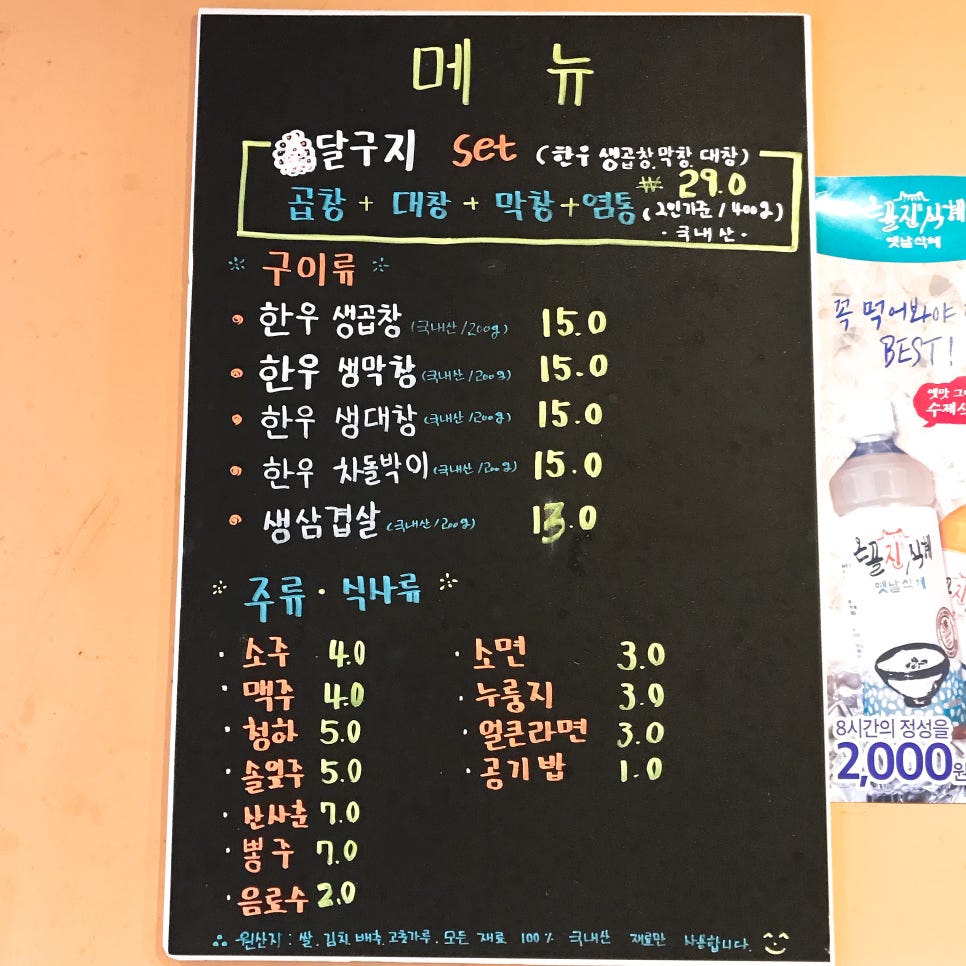 메 뉴
달구지 set (한우 생곱창, 막창, 대창)
₩ 29.0
곱창 + 대창 + 막창 + 염통 (2인기준 / 400g)
· 국내산 ·
* 구이류 *
한우 생곱창 (국내산/200g) 15.0
한우 생막창 (국내산/200g) 15.0
한우 생대창 (국내산/200g) 15.0
한우 차돌박이 (국내산/200g) 15.0
생삼겹살 (국내산/200g) 13.0
* 주류 · 식사류 *
· 소주 4.0
· 맥주 4.0
· 청하 5.0
· 솔잎주 5.0
· 산사춘 7.0
· 뽕주 7.0
· 음료수 2.0
· 소면 3.0
· 누룽지 3.0
· 얼큰라면 3.0
· 공기밥 1.0
∴ 원산지 : 쌀, 김치, 배추, 고춧가루, 모든 재료 100% 국내산 재료만 사용합니다.
옛날식혜
꼭 먹어봐야
BEST!
옛맛
수제
진 식혜
옛날식혜
8시간의 정성을
2,000원